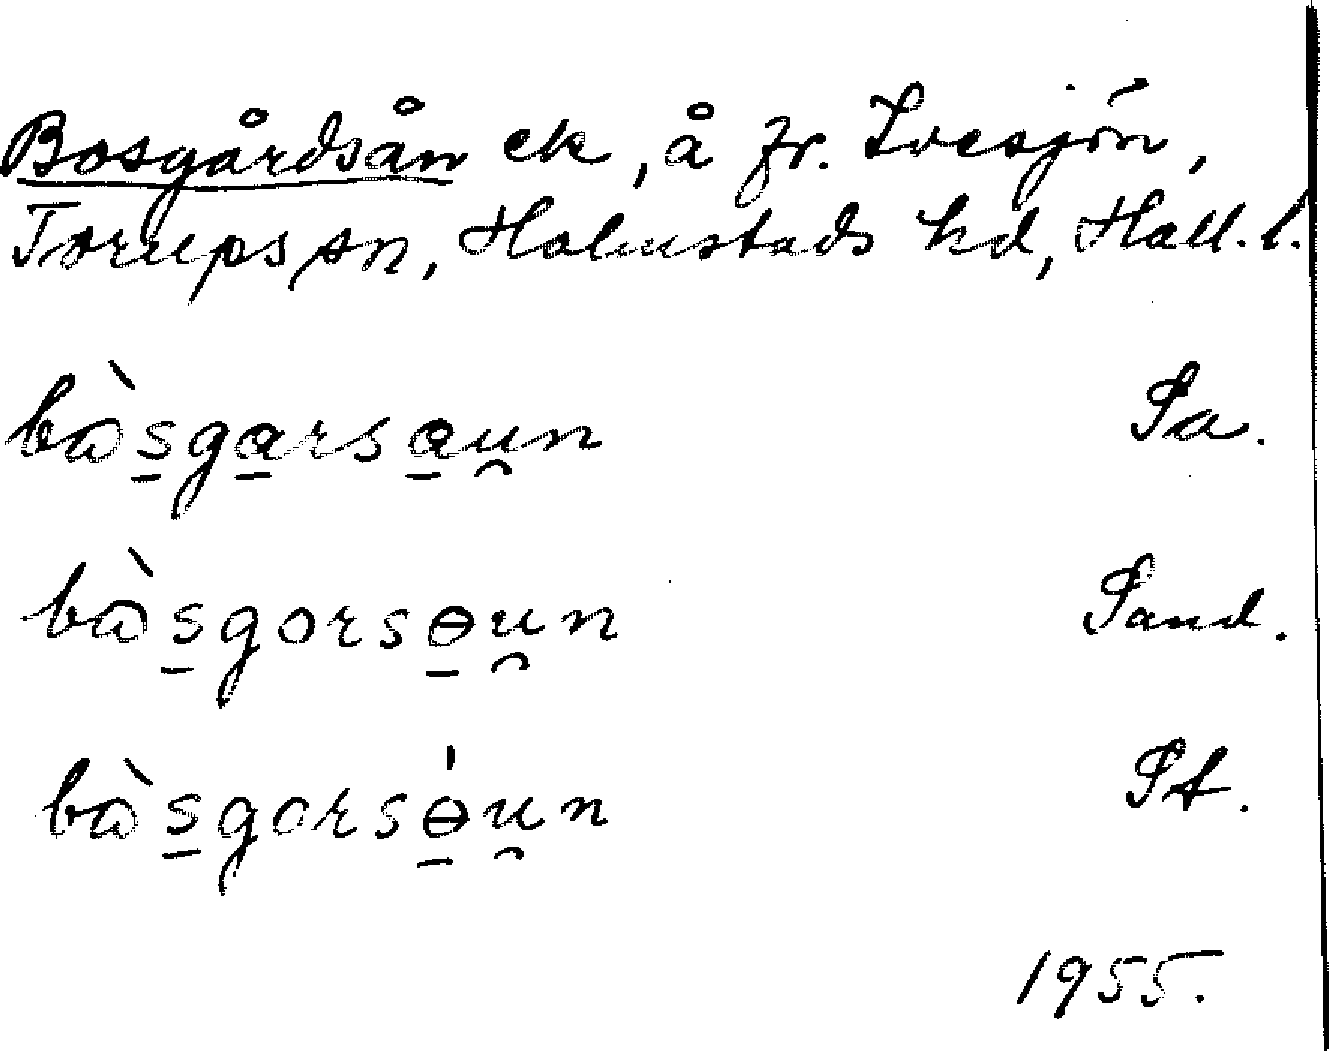 Bosgårdsån ek, å fr.
Torups sn, Halmstads hd, Hall. l.
bɷ̀s̠ga̠rsa̠u̯n Sa.
bɷ̀s̠gorsɵ̠u̯n Sand.
bɷ̀s̠gorsɵ̠́u̯n St.
1955.